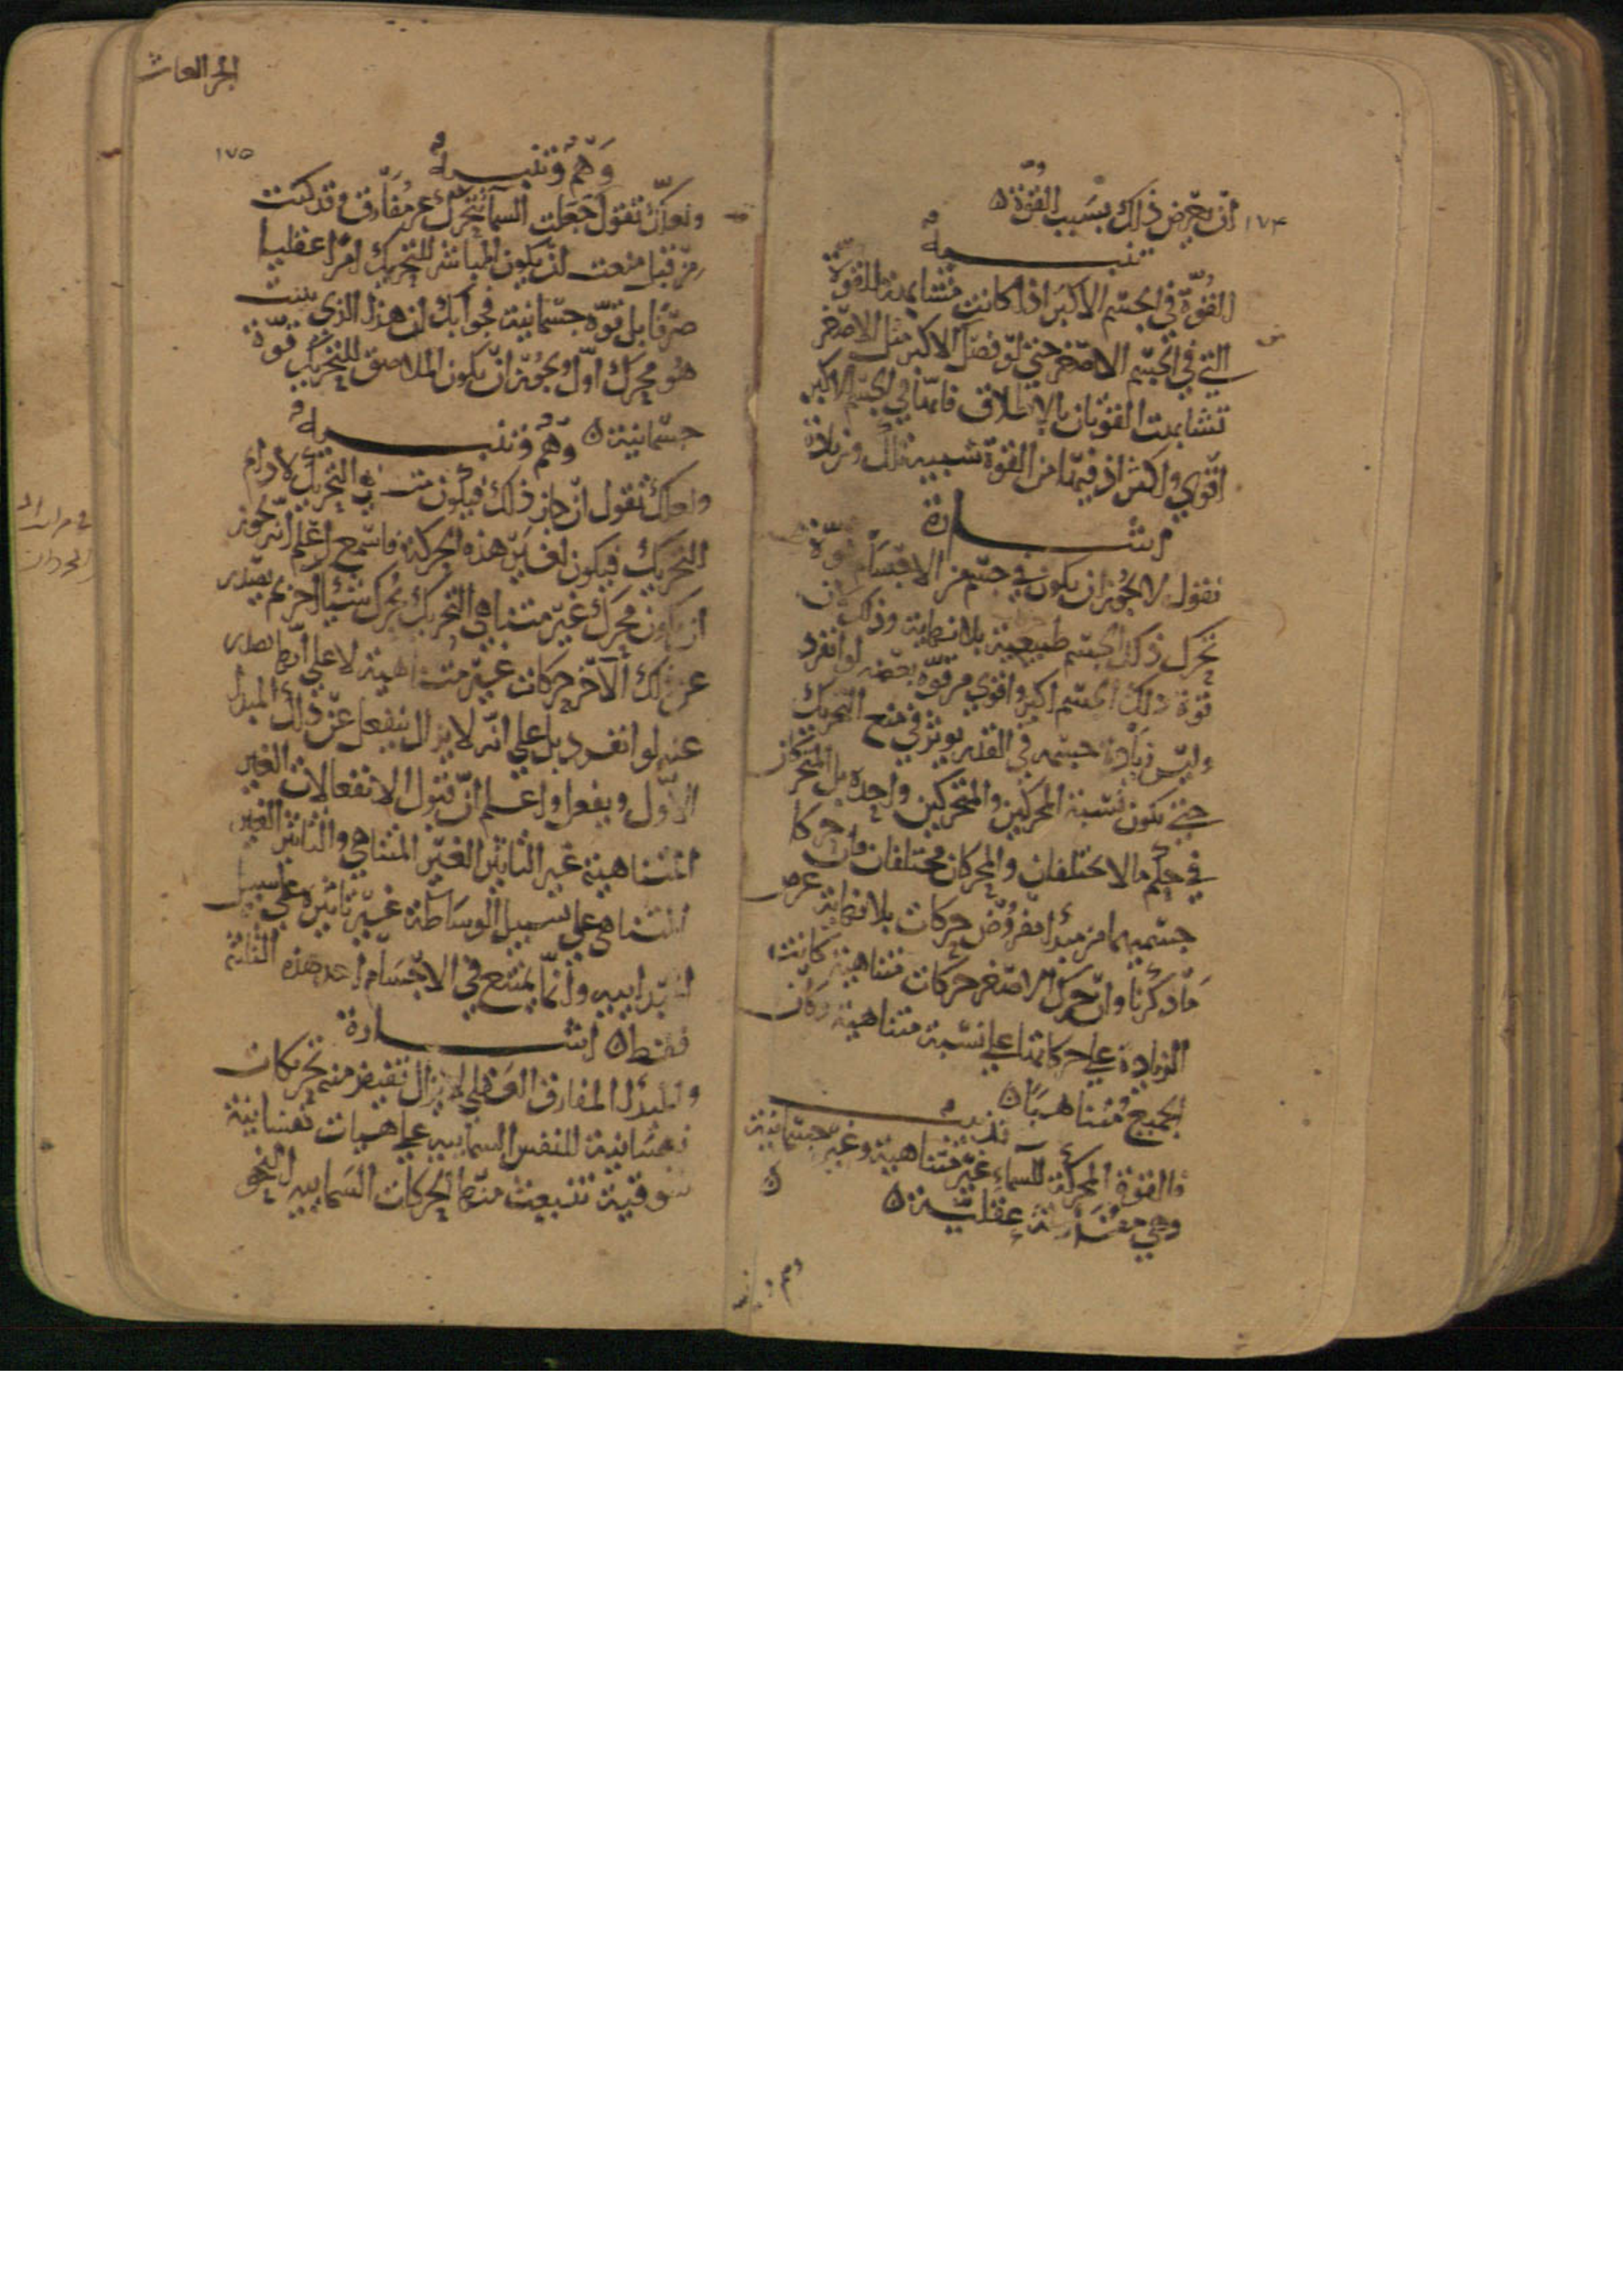 ١٧٤
ان يعرض ذلك بسبب القوة ه
تنبيه
القوة في الجسم الاكبر اذا كانت متشابهة للقوة
التي في الجسم الاصغر حتى لو فصل الاكبر مثل الاصغر
تشابهت القوتان بالاطلاق فانها في الجسم الاكبر
اقوي واكثر اذ فيها من القوة شبيه تلك وزيادة
اشارة
نقول لا يجوز ان يكون في جسم من الاجسام قوة
تحرك ذلك الجسم طبيعية بلا نهاية وذلك ان
قوة ذلك الجسم اكبر واقوي من قوة بعضه لو انفرد
وليس زيادة جسمه في القدر يوثر في منع التحريك
حتى تكون نسبة المحركين والمتحركين واحدة بل المتحركان
في حكم ما لا يختلفان والمحركان مختلفان فان حركا
جسميهما من مبدا مفروض حركات بلا نهاية عرض
ما ذكرنا وان حرك الاصغر حركات متناهية كانت
الزيادة علي حركاتها علي نسبة متناهية وكان
الجميع متناهيا ه
تذنيب
فالقوة المحركة للسماء غير متناهية وغير جسمانية
وهي مفارقة عقلية ه
وهم و
الجز العاشر
١٧٥
وهم وتنبيه
ولعلك تقول جعلت السما تتحرك عن مفارق وقد كنت
من قبل منعت ان يكون المباشر للتحريك امرا عقليا
صرفا بل قوة جسمانية فجوابك ان هذا الذي يثبت
هو محرك اول ويجوز ان يكون الملاصق للتحريك قوة
جسمانية ه وهم وتنبيه
ولعلك تقول ان جاز ذلك فيكون متناهي التحريك لا دام
التحريك فيكون لغير هذه الحركة فاسمع واعلم انه يجوز
ان يكون محرك غير متناهي التحريك يحرك شيئا اخر ثم يصدر
عن ذلك الآخر حركات غير متناهية لا علي انها تصدر
عنه لو انفرد بل علي انه لا يزال ينفعل عن ذلك المبدا
الاول ويفعل واعلم ان قبول الانفعالات الغير
المتناهية غير التاثير الغير المتناهي والتاثير الغير
المتناهي علي سبيل الوساطة غير تاثيره علي سبيل
المبداييه وانما يمتنع في الاجسام احد هذه الثلثة
فقط ه اشارة
والمبدا المفارق العقلي لا يزال تفيض منه تحريكات
نفسانية للنفس السماييه علي هيات نفسانية
شوقية تنبعث منها الحركات السماييه النحو